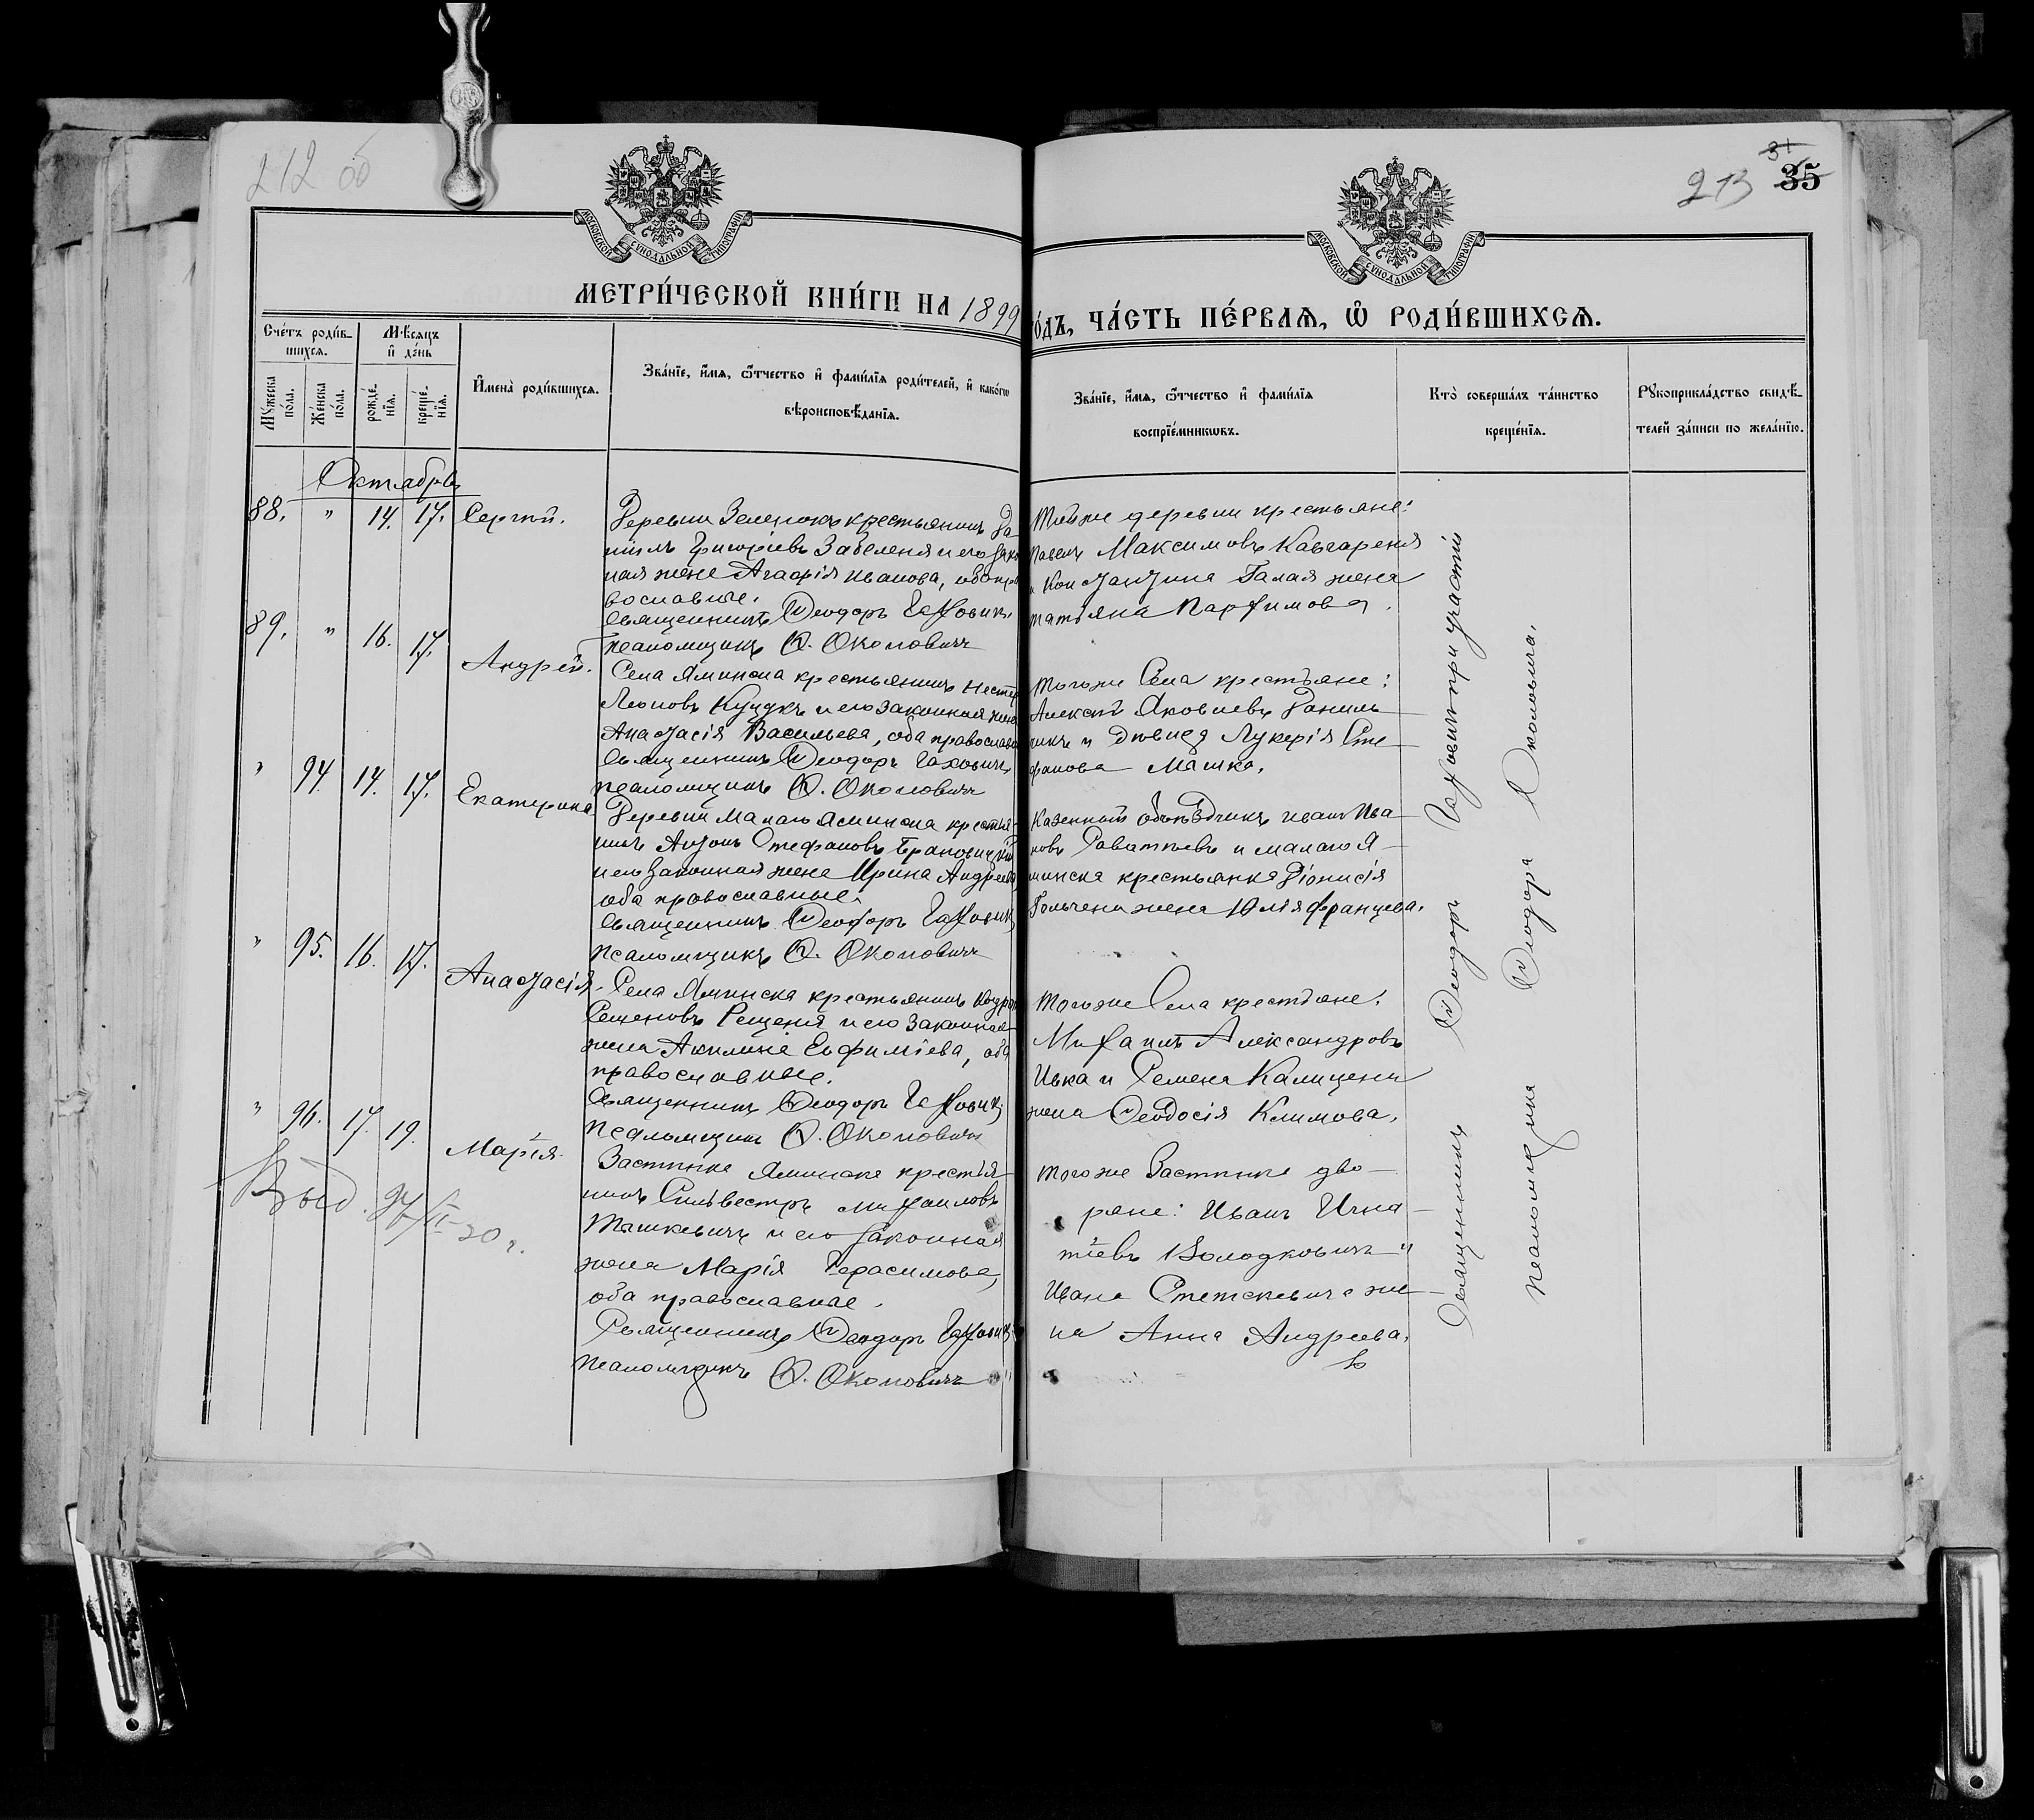 212 об
213
31
35
МОСКОВСКОЙ СУНОДАЛЬНОЙ ТИПОГРАФІИ
МОСКОВСКОЙ СУНОДАЛЬНОЙ ТИПОГРАФІИ
МЕТРИ́ЧЕСКОЙ КНИ́ГИ НА 1899
ѓОДЪ, ЧА́СТЬ ПЕ́РВАЯ, Ѡ РОДИ́ВШИХСЯ.
Сче́тъ роди́в-
шихся.
Мѣсяцъ
и де́нь
Му́жеска по́ла.
Же́нска по́ла.
рожде́-нія.
креще́-нія.
Имена̀ роди́вшихся.
Зва́ніе, и́мя, ѻ́тчество и фами́лія роди́телей, и како́гѡ
вѣроисповѣ́данія.
Зва́ніе, и́мя, ѻ́тчество и фами́лія
воспріе́мникѡвъ.
Кто̀ соверша́лъ та́инство
креще́нія.
Рукоприкла́дство свидѣ́-
телей за́писи по жела́нію.
Октябрь
88. " 14. 17. Сергій.
Деревни Зеленокъ крестьянинъ Да-
ніилъ Григоріевъ Забеленя и его зако
ная жена Агафія Иванова, оба пра
вославные.
Священникъ Ѳеодоръ Гахович
Псаломщикъ Ѳ. Околовичъ
Той же деревни крестьяне:
Павелъ Максимовъ Кавгареня
и Константина Галая жена
Татьяна Парфимова.
89. " 16. 17. Андрей.
Села Яминска крестьянинъ Несте
Леоновъ Куцукъ и его законная жена
Анастасія Васильева, оба православн
Священникъ Ѳеодоръ Гаховичъ
Псаломщикъ Ѳ. Околовичъ
Того же Села крестьяне:
Алексѣй Яковлевъ Данил
чикъ и дѣвица Лукерія Сте-
фанова Машка.
" 94. 14. 17. Екатерина
Деревни Малаго Яминска крестья-
нинъ Антонъ Стефановъ
и его законная жена Ирина Андреева
оба православные.
Священникъ Ѳеодоръ Гахович
Псаломщикъ Ѳ. Околовичъ
Казенный объѣздчикъ Иванъ Ива-
новъ и Малаго Я-
минска крестьянка Діонисія
жена Юлія Францева.
" 95. 16. 17. Анастасія.
Села Яминска крестьянинъ
Семеновъ Рещеня и его законная
жена Акилина Евфиміева, оба
православные.
Священникъ Ѳеодоръ Гахович
Псаломщикъ Ѳ. Околовичъ
Того же Села крестьяне:
Михаилъ Александровъ
Ивка и Семена Калицени
жена Ѳеодосія Климова.
" 96. 17. 19. Марія.
Выд.
Застѣнка Яминска крестья-
нинъ Сильвестръ Михаиловъ
Ташкевичъ и его законная
жена Марія Герасимова,
оба православные.
Священникъ Ѳеодоръ Гахович
Псаломщикъ Ѳ. Околовичъ
Того же Застѣнка дво-
ряне: Иванъ Игна-
тіевъ Володковичъ и
Ивана Статкевича же-
на Анна Андреева.
Священникъ Ѳеодоръ Гаховичъ при участіи
псаломщика Ѳеодора Околовича.